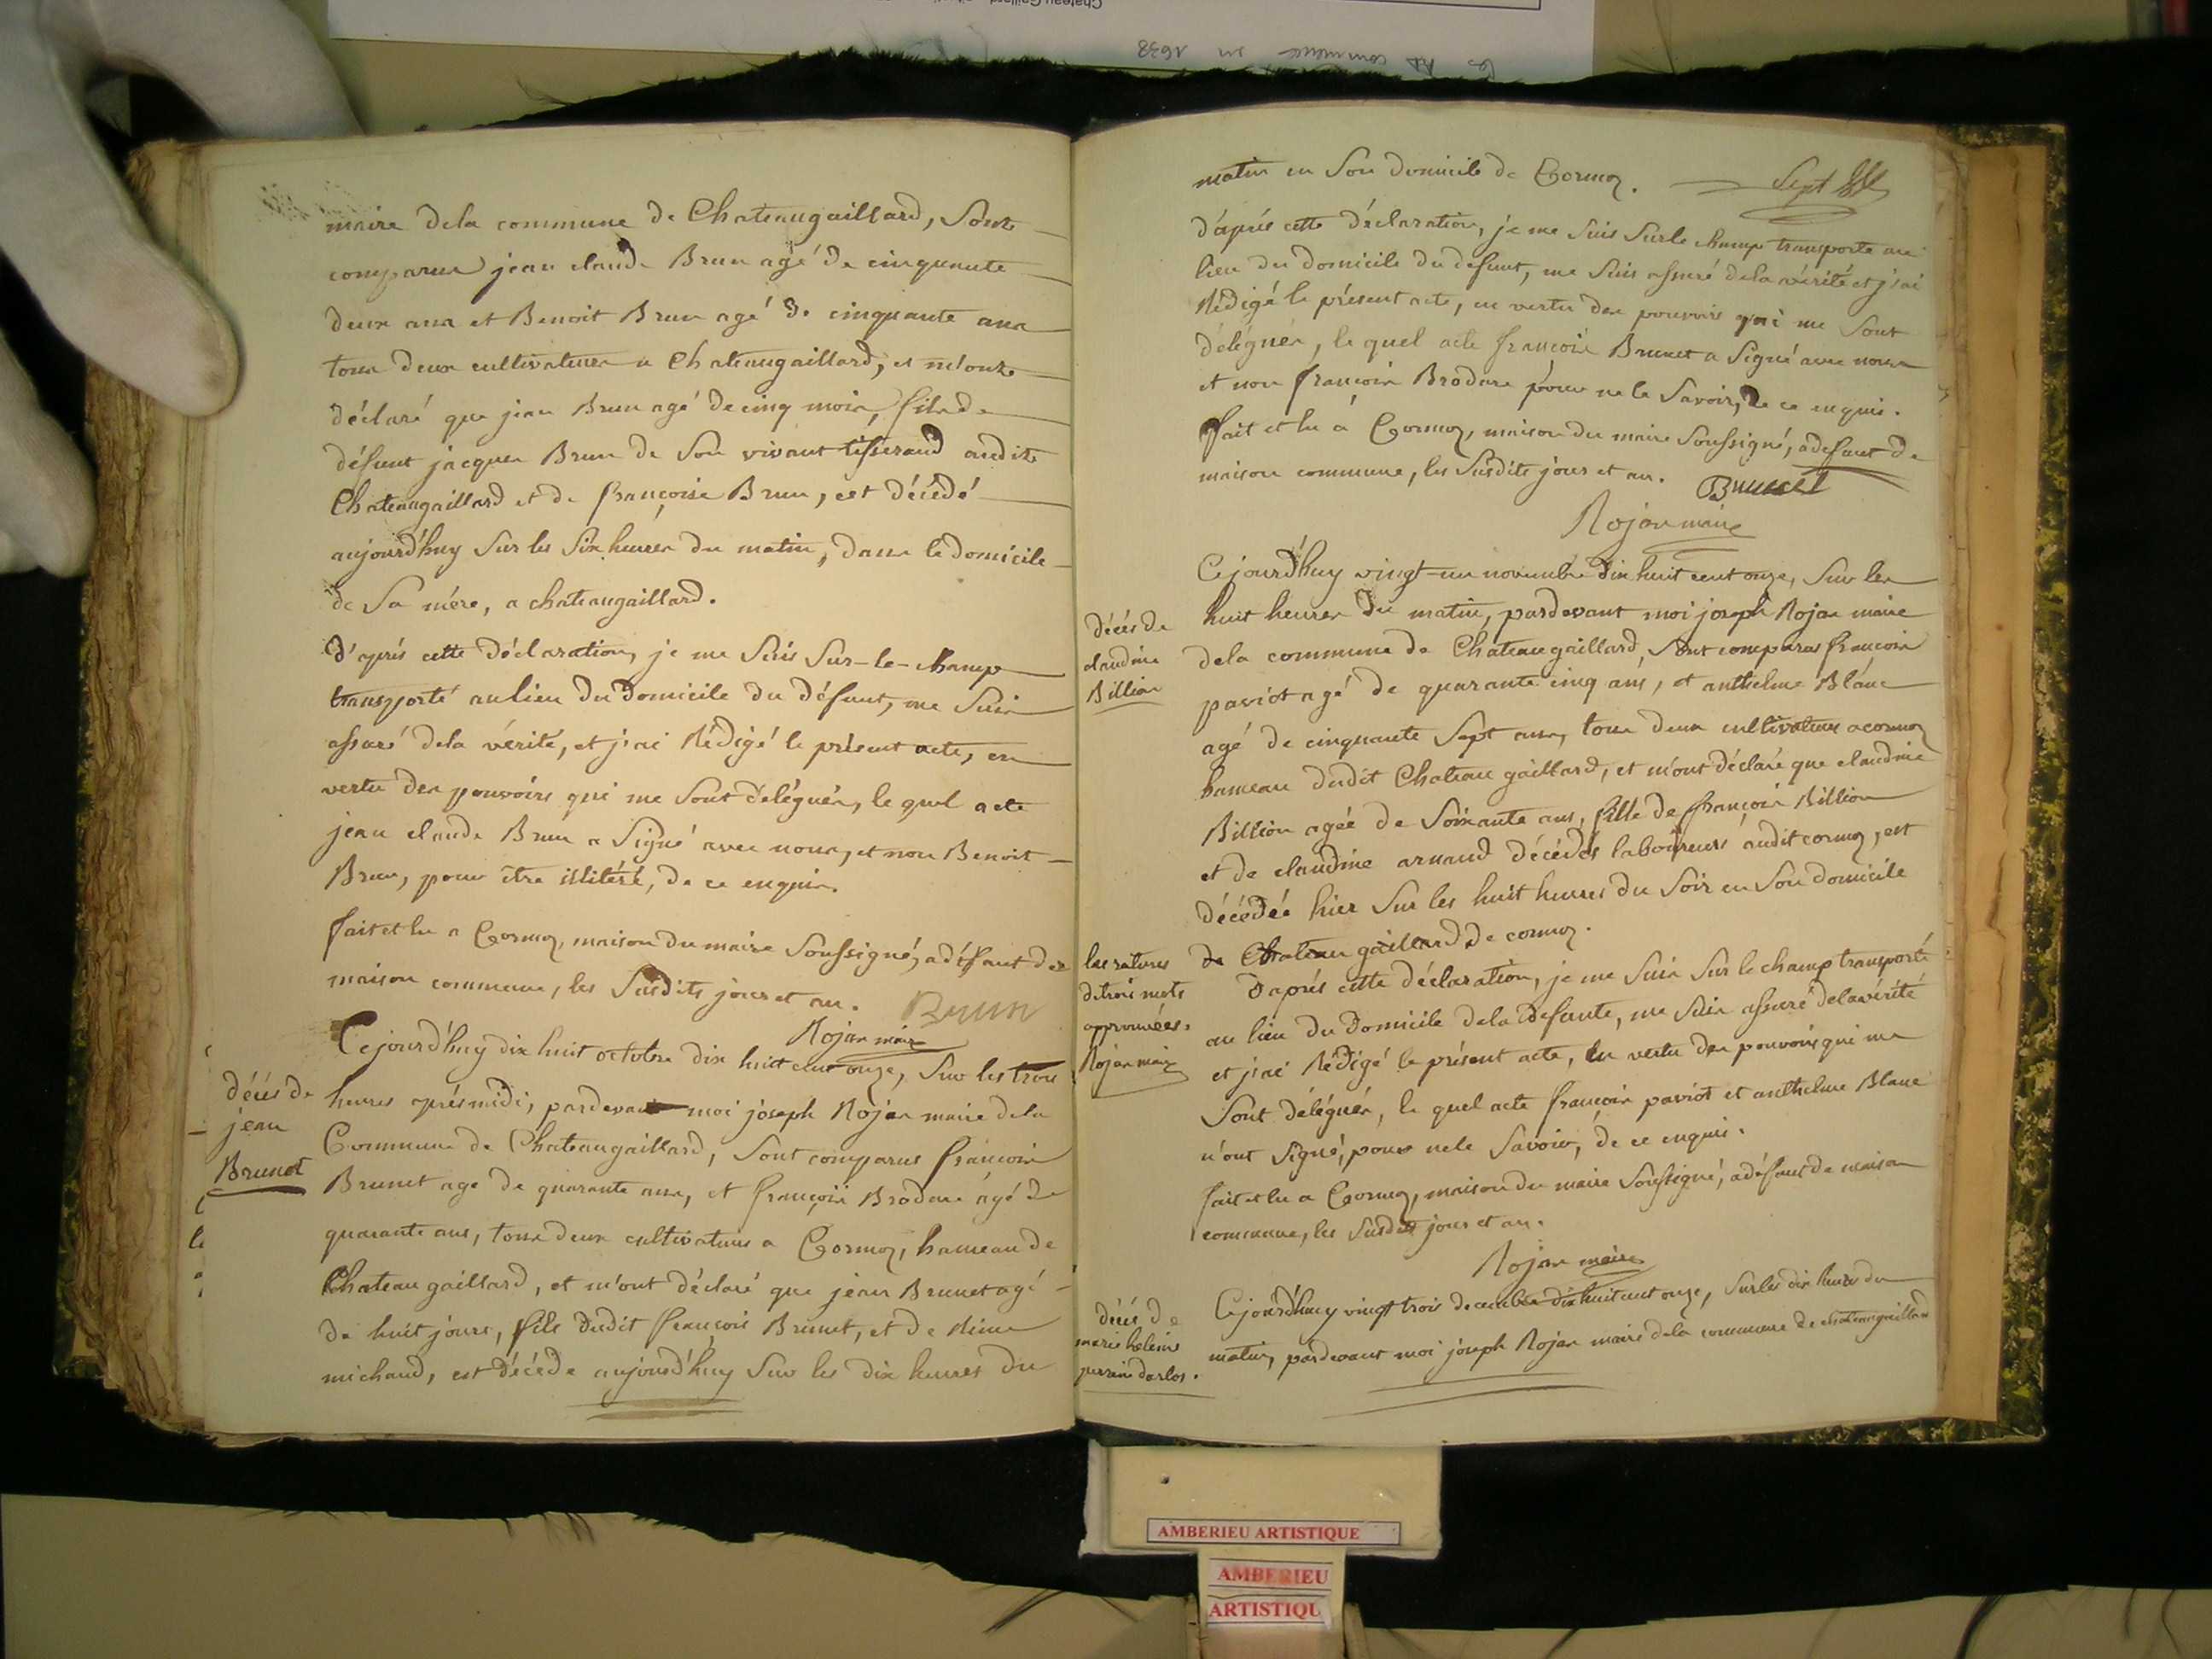 maire dela commune de Chateaugaillard, Sont
comparus jean claude Brun agé de cinquante
deux ans et Benoit Brun agé de cinquante ans
tous deux cultivateurs a Chateaugaillard, et m'ont
déclaré que jean Brun agé de cinq mois, fils de
défunt jacques Brun de Son vivant tisserand audit
Chateaugaillard et de françoise Brun, est décédé
aujourd'huy Sur les Six heures du matin, dans le domicile
de Sa mére, a chateaugaillard.
d'aprés cette déclaration, je me Suis Sur-le-champ
transporté au lieu du domicile du défunt, me Suis
assuré dela vérité, et j'ai rédigé le présent acte, en
vertu des pouvoirs qui me Sont délégués, le quel acte
jean claude Brun a Signé avec nous, et non Benoit
Brun, pour être illitéré, de ce enquis.
fait et lu a Cormoz, maison du maire Soussigné, a défaut de
maison commune, les Susdits jour et an. Brun
Rojan maire
décés de
jean
Brunet
Cejourd'huy dix huit octobre dix huit cent onze, Sur les trois
heures aprés midi, pardevant moi joseph Rojan maire dela
Commune de Chateaugaillard, Sont comparus françois
Brunet agé de quarante ans, et françois Brodare agé de
quarante ans, tous deux cultivateurs a Cormoz, hameau de
Chateaugaillard, et m'ont déclaré que jean Brunet agé
de huit jours, fils dudit françois Brunet, et de
michaud, est décédé aujourd'huy Sur les dix heures du
matin en Son domicile de Cormoz. Sept
d'aprés cette déclaration, je me Suis Sur le champ transporté au
lieu du domicile du defunt, me Suis assuré dela vérité et j'ai
rédigé le présent acte, en vertu des pouvoirs qui me Sont
délégués, le quel acte françois Brunet a Signé avec nous
et non françois Brodare pour ne le Savoir, de ce enquis.
fait et lu a Cormoz, maison du maire Soussigné, a defaut de
maison commune, les Susdits jour et an. Brunet
Rojan maire
décés de
claudine
Billion
Cejourd'huy vingt-un novembre dix huit cent onze, Sur les
huit heures du matin, pardevant moi joseph Rojan maire
dela commune de Chateaugaillard, Sont comparus françois
paviot agé de quarante cinq ans, et anthelme Blanc
agé de cinquante Sept ans, tous deux cultivateurs a cormoz
hameau dudit Chateau gaillard, et m'ont déclaré que claudine
Billion agée de Soixante ans, fille de françois Billion
et de claudine arnaud décédés laboureurs audit cormoz, est
décédée hier Sur les huit heures du Soir en Son domicile
de Chateau gaillard de cormoz.
les ratures
de trois mots
approuvées.
Rojan maire
D'aprés cette déclaration, je me Suis Sur le champ transporté
au lieu du domicile dela defunte, me Suis assuré dela vérité
et j'ai rédigé le présent acte, en vertu des pouvoirs qui me
Sont délégués, le quel acte françois paviot et anthelme Blanc
n'ont Signé, pour ne le Savoir, de ce enquis.
fait et lu a Cormoz, maison du maire Soussigné, a défaut de maison
commune, les Susdits jour et an.
Rojan maire
décés de
marie heleine
perrine darlos.
Cejourd'huy vingt trois decembre dix huit cent onze, Sur les dix heures du
matin, pardevant moi joseph Rojan maire dela commune de chateaugaillard
AMBERIEU ARTISTIQUE
AMBERIEU
ARTISTIQU